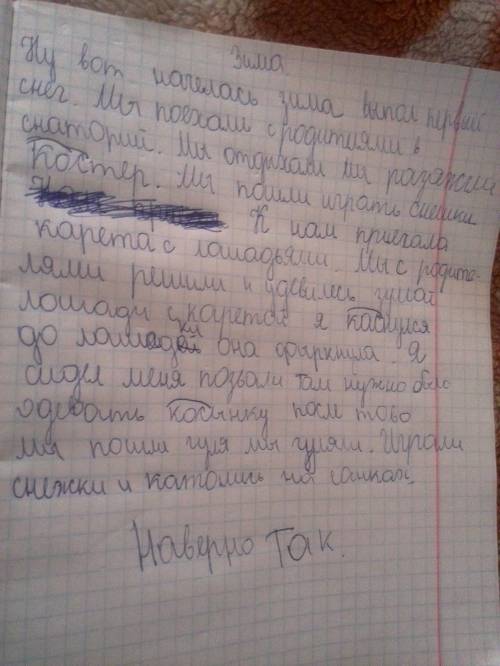 Зима
Ну вот начелась зима выпал первый
снег. Мы поехали с родитиями в
снаторий. Мы отдыхали ми разажгли
костер. Мы пошли играть снешки
К нам приехала
карета с лошадьями. Мы с родите-
лями решили и
лошади с каретой я каснулся
до лошадки она фыркнула. Я
сидел меня позвали там нужно было
одевать косынку посл тово
мы пошли гуля мы гуляли. Играли
снежки и католись на санках.
Наверно Так.